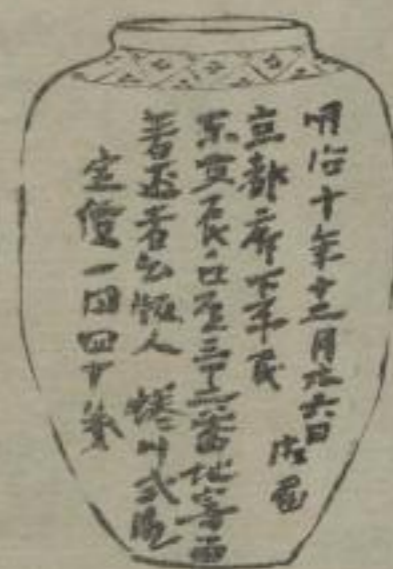 明治十年十二月廿六日
御届
京都府下平民
東京元数寄屋三丁目六番地寄留
著述者出版人 蜷川式胤
定價一圓四十錢